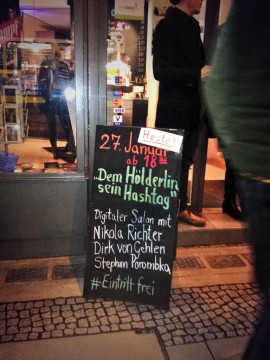 Heute!
27. Januar
ab 18
"Dem Hölderlin
sein Hashtag"
Digitaler Salon mit
Nikola Richter
Dirk von Gehlen
Stephan Porombka
#Eintritt frei